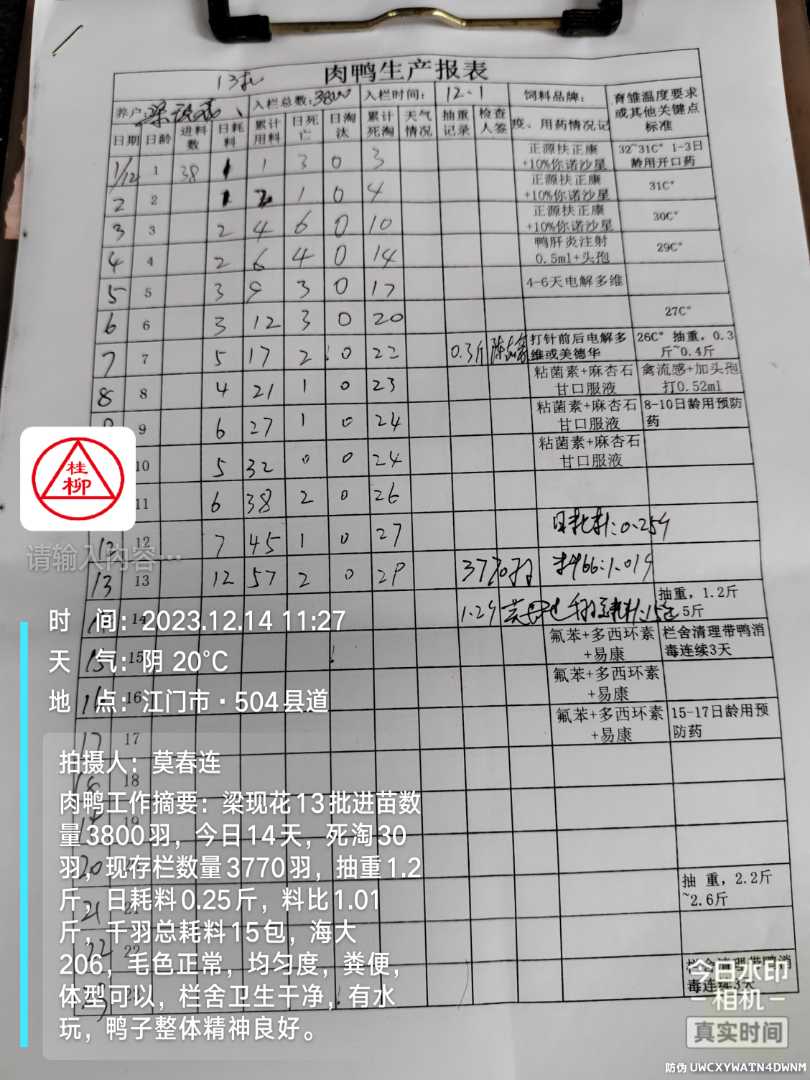 13批 肉鸭生产报表
养户: 入栏总数:3800 入栏时间: 12.1 饲料品牌: 育雏温度要求或其他关键点标准
日期 日龄 进料数 日耗料 累计用料 日死亡 日淘汰 累计死淘 天气情况 抽重记录 检查人签 疫、用药情况记
1/12 1 38 1 1 3 0 3 正源扶正康+10%你诺沙星 32~31C° 1-3日龄用开口药
2 2 1 2 1 0 4 正源扶正康+10%你诺沙星 31C°
3 3 2 4 6 0 10 正源扶正康+10%你诺沙星 30C°
4 4 2 6 4 0 14 鸭肝炎注射0.5ml+头孢 29C°
5 5 3 9 3 0 17 4-6天电解多维
6 6 3 12 3 0 20 27C°
7 7 5 17 2 0 22 0.3斤 打针前后电解多维或美德华 26C° 抽重,0.3斤~0.4斤
8 8 4 21 1 0 23 粘菌素+麻杏石甘口服液 禽流感+加头孢打0.52ml
9 6 27 1 0 24 粘菌素+麻杏石甘口服液 8-10日龄用预防药
10 5 32 0 0 24 粘菌素+麻杏石甘口服液
11 6 38 2 0 26
12 12 7 45 1 0 27 日耗料:0.25斤
13 13 12 57 2 0 29 3770羽 料比:1.01斤
14 1.2斤 千羽总耗料:15包 抽重,1.2斤 5斤
15 15 氟苯+多西环素+易康 栏舍清理带鸭消毒连续3天
16 16 氟苯+多西环素+易康
17 17 氟苯+多西环素+易康 15-17日龄用预防药
18
20
21 抽 重,2.2斤~2.6斤
22 22
栏舍清理带鸭消毒连续3天
桂柳
请输入内容…
时 间:2023.12.14 11:27
天 气:阴 20℃
地 点:江门市·504县道
拍摄人:莫春连
肉鸭工作摘要:梁现花13批进苗数
量3800羽,今日14天,死淘30
羽,现存栏数量3770羽,抽重1.2
斤,日耗料0.25斤,料比1.01
斤,千羽总耗料15包,海大
206,毛色正常,均匀度,粪便,
体型可以,栏舍卫生干净,有水
玩,鸭子整体精神良好。
今日水印
相机
真实时间
防伪 UWCXYWATN4DWNM